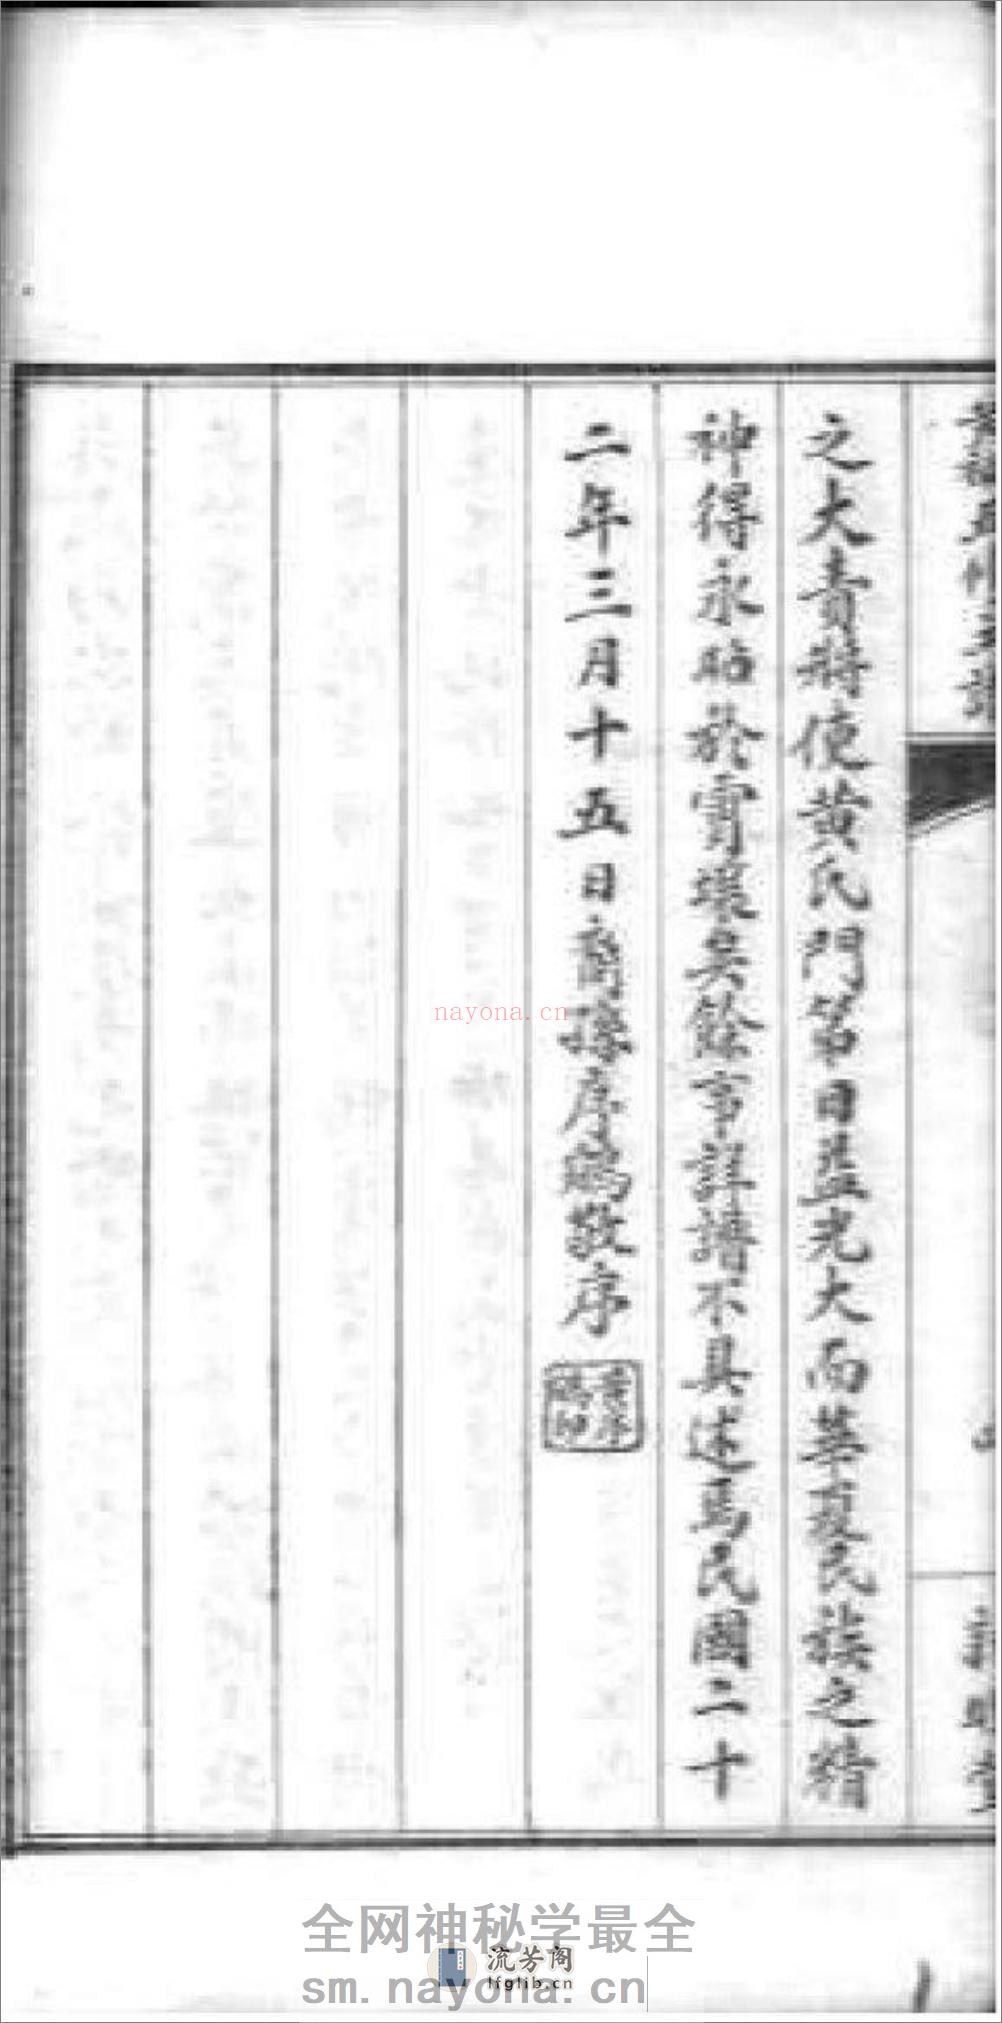 之大責將使黃氏門第日益光大而華夏民族之精
神得永昭於寰壤矣餘言詳譜不具述焉民國二十
二年三月十五日裔孫序鵷敬序
nayona.cn
全网神秘学最全
流芳阁
lfglib.cn
sm.nayona.cn